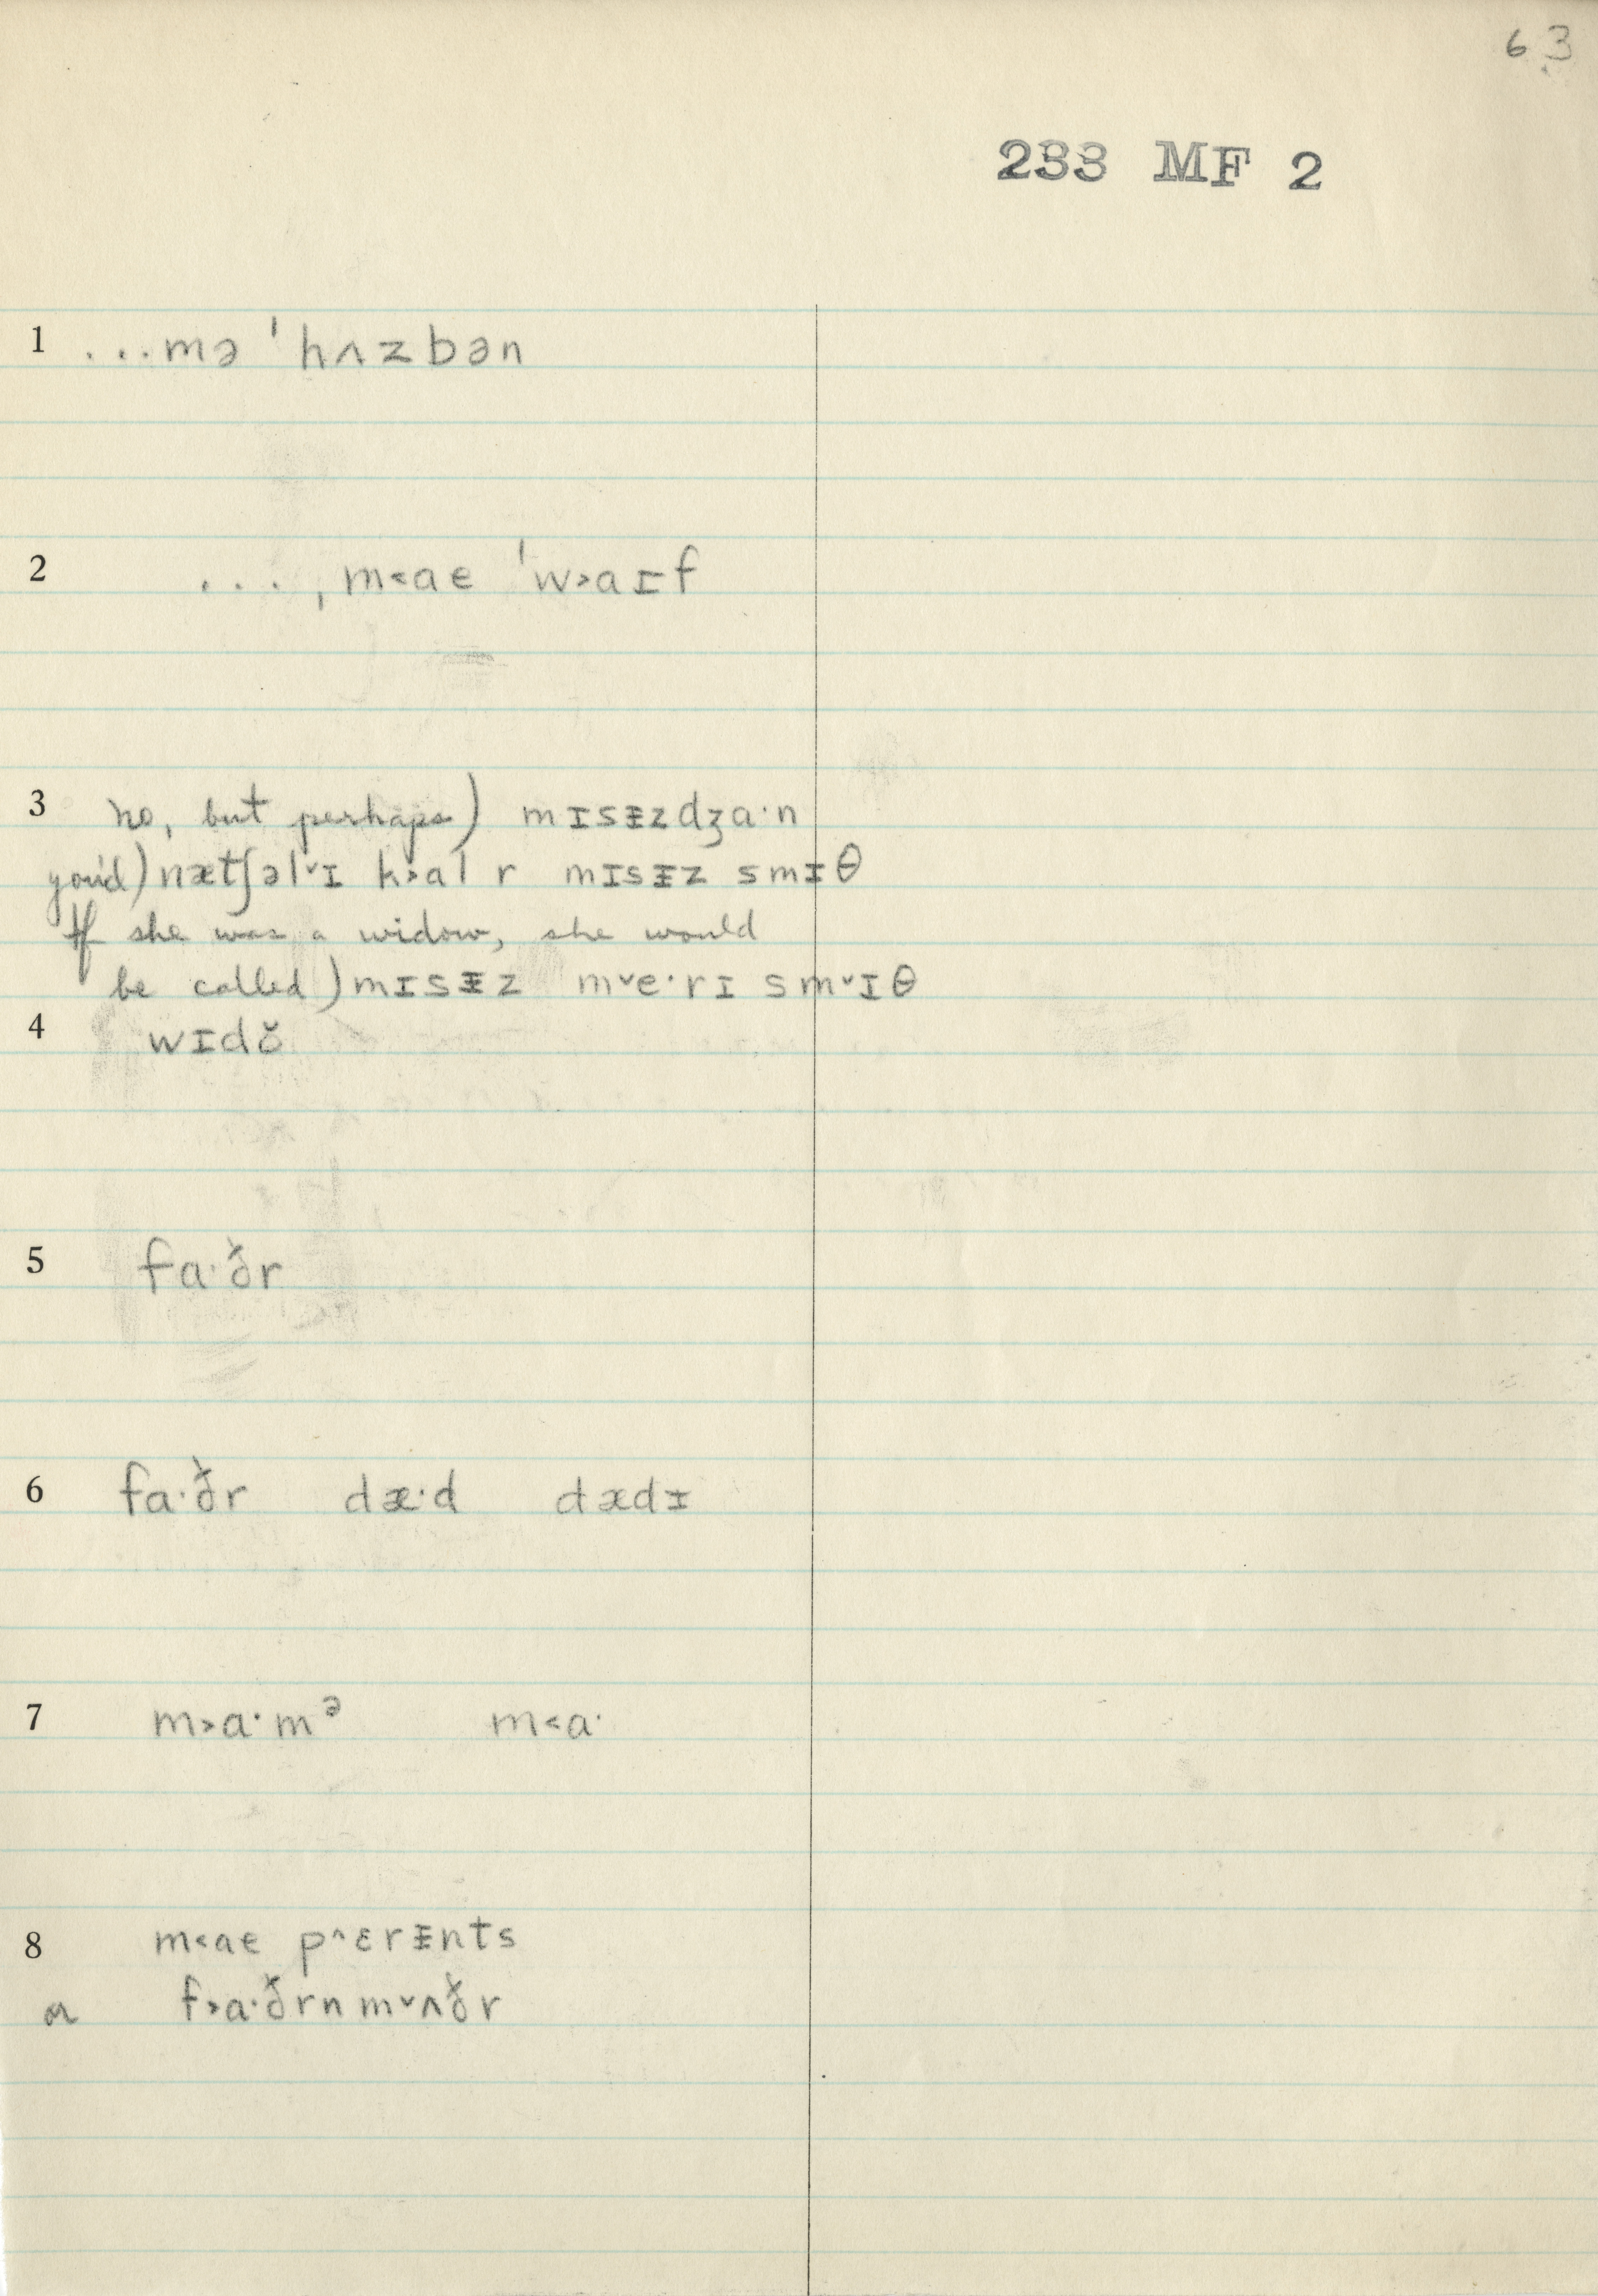 63
233 MF 2
1 ...mə ˈhʌzbən
2 ... ˌm˂ae ˈw˃aɪf
3 no, but perhaps) mɪsᵻzdʒa·n
you'd) nætʃəl˅ɪ k˃al r mɪsᵻz smɪθ
If she was a widow, she would
be called) mɪsᵻz m˅e·rɪ sm˅ɪθ
4 wɪdŏ
5 fa·ð̌r
6 fa·ð̌r dæ·d dædɪ
7 m˃a·mᵊ m˂a·
8 m˂ae p˄ɛrᵻnts
or f˃a·ð̌rn m˅ʌð̌r